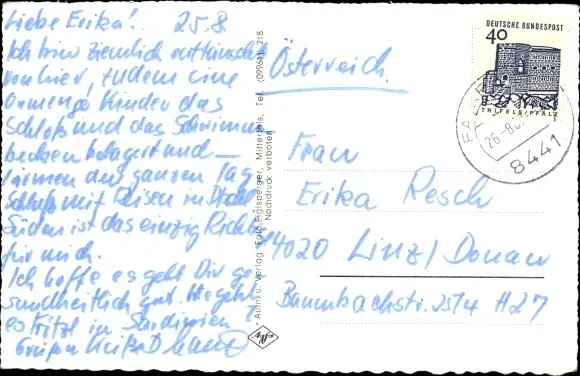 Liebe Erika! 25.8.
Ich bin ziemlich enttäuscht
von hier, zudem eine
Menge Kinder das
Schloß und das Schwimm
becken belagert und –
lärmen den ganzen Tag
Schluß mit Reisen in
Süden ist das einzig Richt
für mich.
Ich hoffe es geht Dir ge
sundheitlich gut.
es Fritzl in Sardinien
Grüße
Aufn. u. Verlag Foto Eglsperger, Mitterfels, Tel. (09961) 218
Nachdruck verboten
Agfa
DEUTSCHE BUNDESPOST
40
TRIFELS/PFALZ
26.-8.
8441
Österreich.
Frau
Erika Resch
4020 Linz/Donau
Baumbachstr. 2514 H27